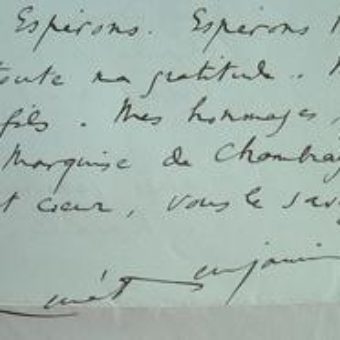 Espérons. Espérons
toute ma gratitude.
fils. Mes hommages,
Marquise de Chambray
et cœur, vous le sav